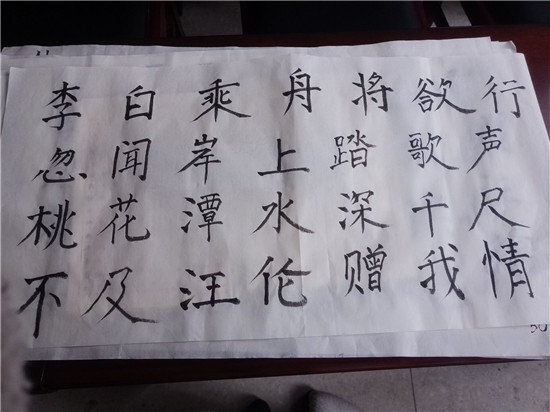 李白乘舟将欲行
忽闻岸上踏歌声
桃花潭水深千尺
不及汪伦赠我情